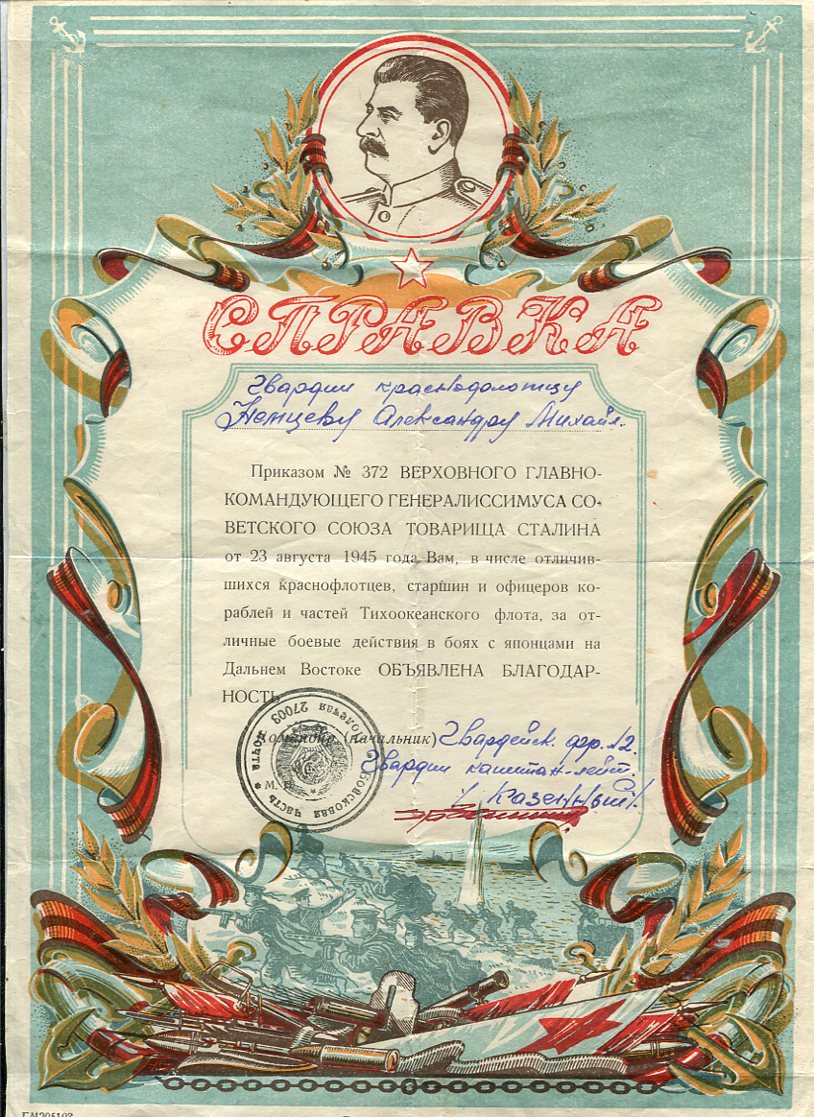 СПРАВКА
Гвардии краснофлотцу
Немцеву Александру Михайл.
Приказом № 372 ВЕРХОВНОГО ГЛАВНО-
КОМАНДУЮЩЕГО ГЕНЕРАЛИССИМУСА СО-
ВЕТСКОГО СОЮЗА ТОВАРИЩА СТАЛИНА
от 23 августа 1945 года Вам, в числе отличив-
шихся краснофлотцев, старшин и офицеров ко-
раблей и частей Тихоокеанского флота, за от-
личные боевые действия в боях с японцами на
Дальнем Востоке ОБЪЯВЛЕНА БЛАГОДАР-
НОСТЬ
Командир (начальник) Гвардейск.
Гвардии капитан-лейт.
/Казенный/
М. П.
Войсковая часть * Полевая почта 27009 *